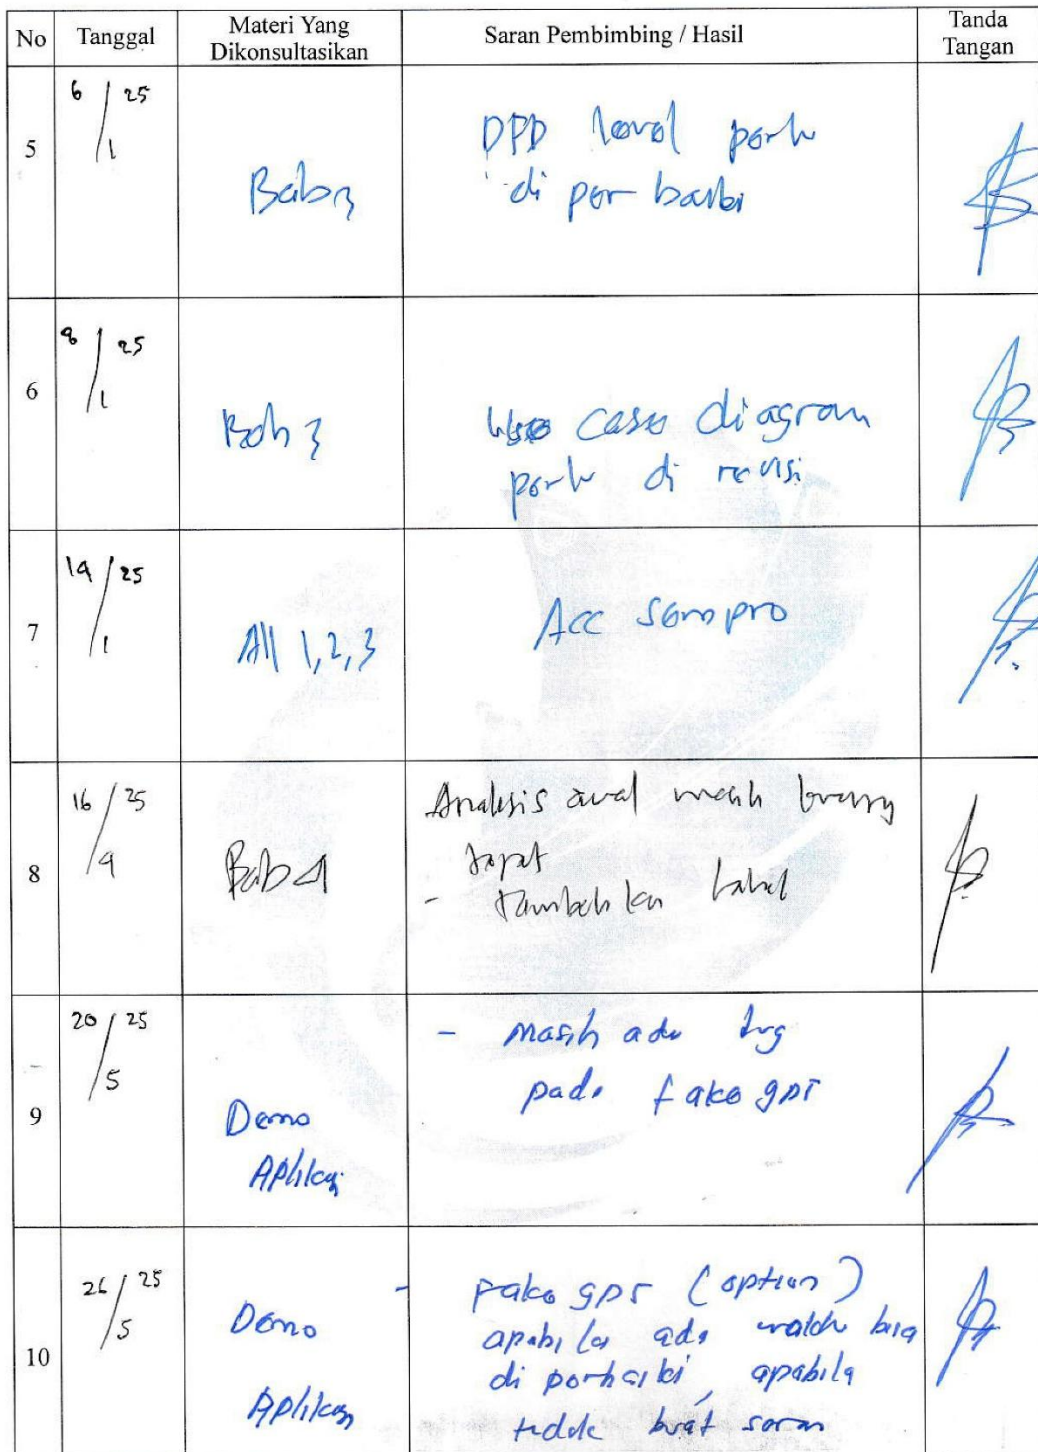 No Tanggal Materi Yang Dikonsultasikan Saran Pembimbing / Hasil Tanda Tangan
5
6/1 25
Bab 3
DFD level perlu
di perbaiki
6
8/1 25
Bab 3
Use case diagram
perlu di revisi
7
14/1 25
All 1,2,3
Acc sempro
8
16/4 25
Bab 4
Analisis awal masih kurang
tepat
- Tambahkan tabel
9
20/5 25
Demo
Aplikasi
- Masih ada bug
pada fake gps
10
26/5 25
Demo
Aplikasi
- Fake gps (option)
apabila ada waktu bisa
di perbaiki, apabila
tidak buat saran